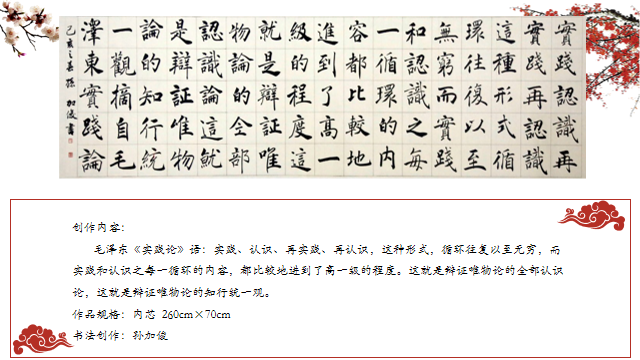 實踐認識再
實踐再認識
這種形式循
環往復以至
無窮而實踐
和認識之每
一循環的内
容都比較地
進到了高一
級的程度這
就是辯証唯
物論的全部
認識論這就
是辯証唯物
論的知行統
一觀摘自毛
澤東實踐論
己亥之春孫加俊書
创作内容：
毛泽东《实践论》语：实践、认识、再实践、再认识，这种形式，循环往复以至无穷，而
实践和认识之每一循环的内容，都比较地进到了高一级的程度。这就是辩证唯物论的全部认识
论，这就是辩证唯物论的知行统一观。
作品规格：内芯 260cm×70cm
书法创作：孙加俊